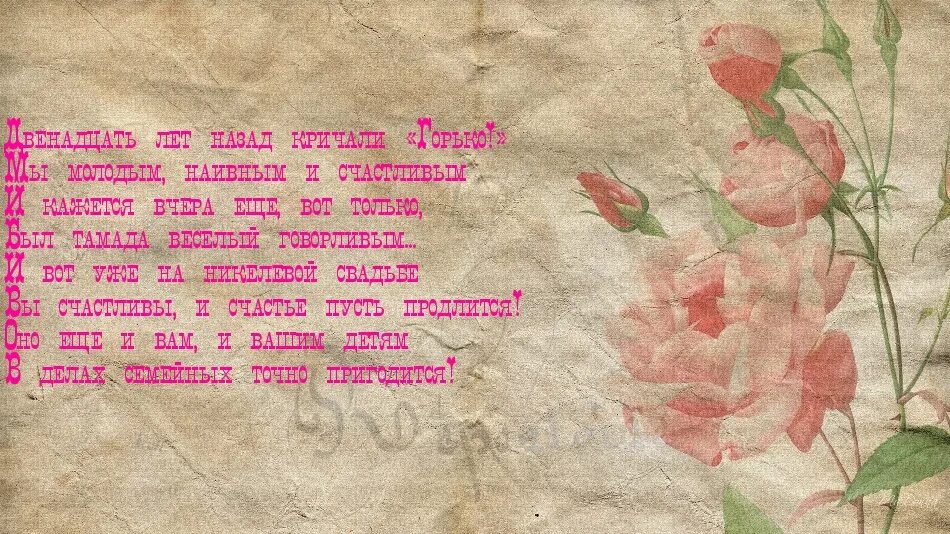 Двенадцать лет назад кричали «Горько!»
Мы молодым, наивным и счастливым
И кажется вчера еще, вот только,
Был тамада веселый говорливым...
И вот уже на никелевой свадьбе
Вы счастливы, и счастье пусть продлится!
Оно еще и вам, и вашим детям
В делах семейных точно пригодится!